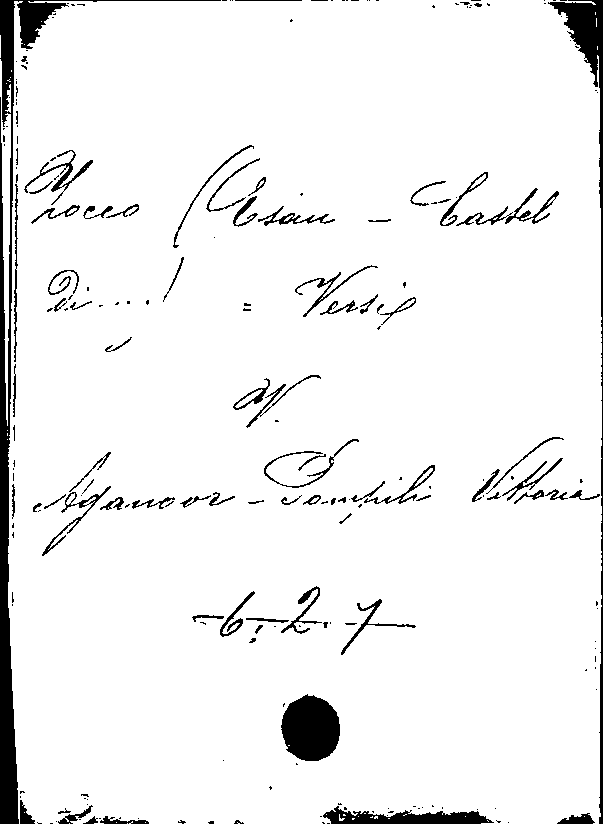 Zocco (Erian - Castel
Di....) = Versi
V.
Aganoor - Pompilj Vittoria
6.2.7